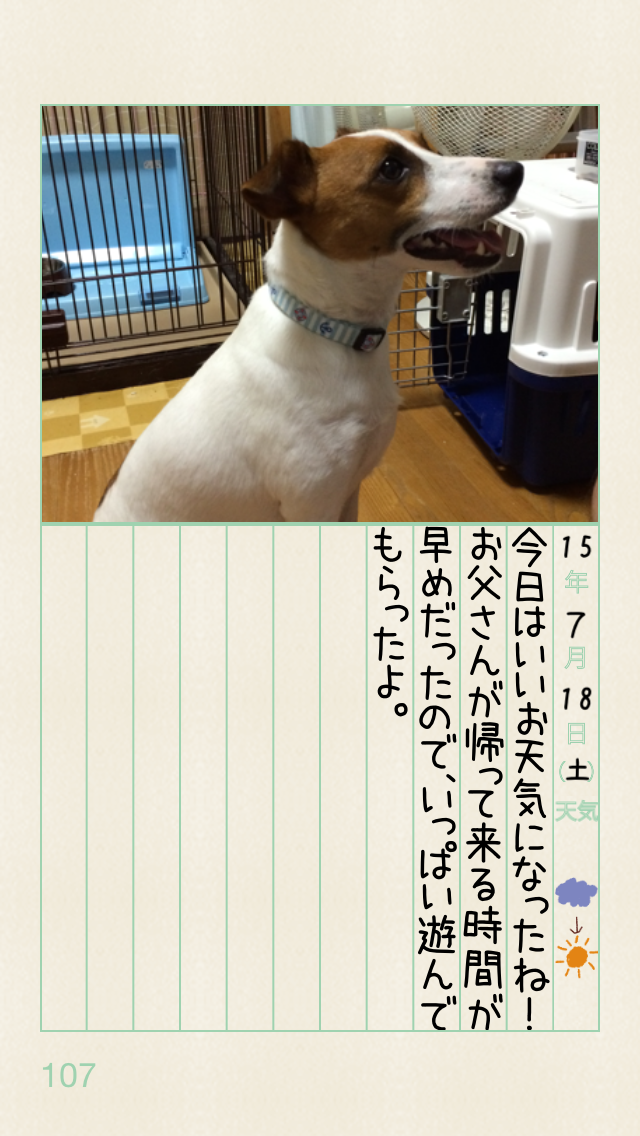 15年7月18日(土)天気
今日はいいお天気になったね!
お父さんが帰って来る時間が
早めだったので、いっぱい遊んで
もらったよ。
107